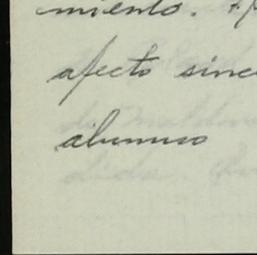 miento.
afecto since
alumno